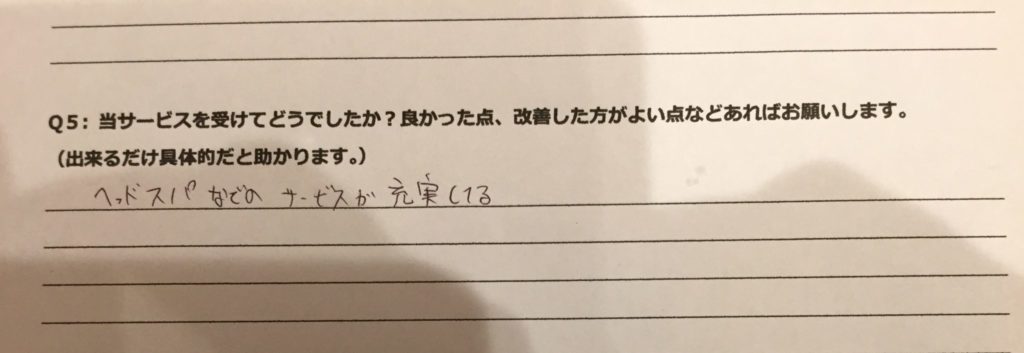 Q5：当サービスを受けてどうでしたか？良かった点、改善した方がよい点などあればお願いします。
（出来るだけ具体的だと助かります。）
ヘッドスパなどの サービスが 充実してる